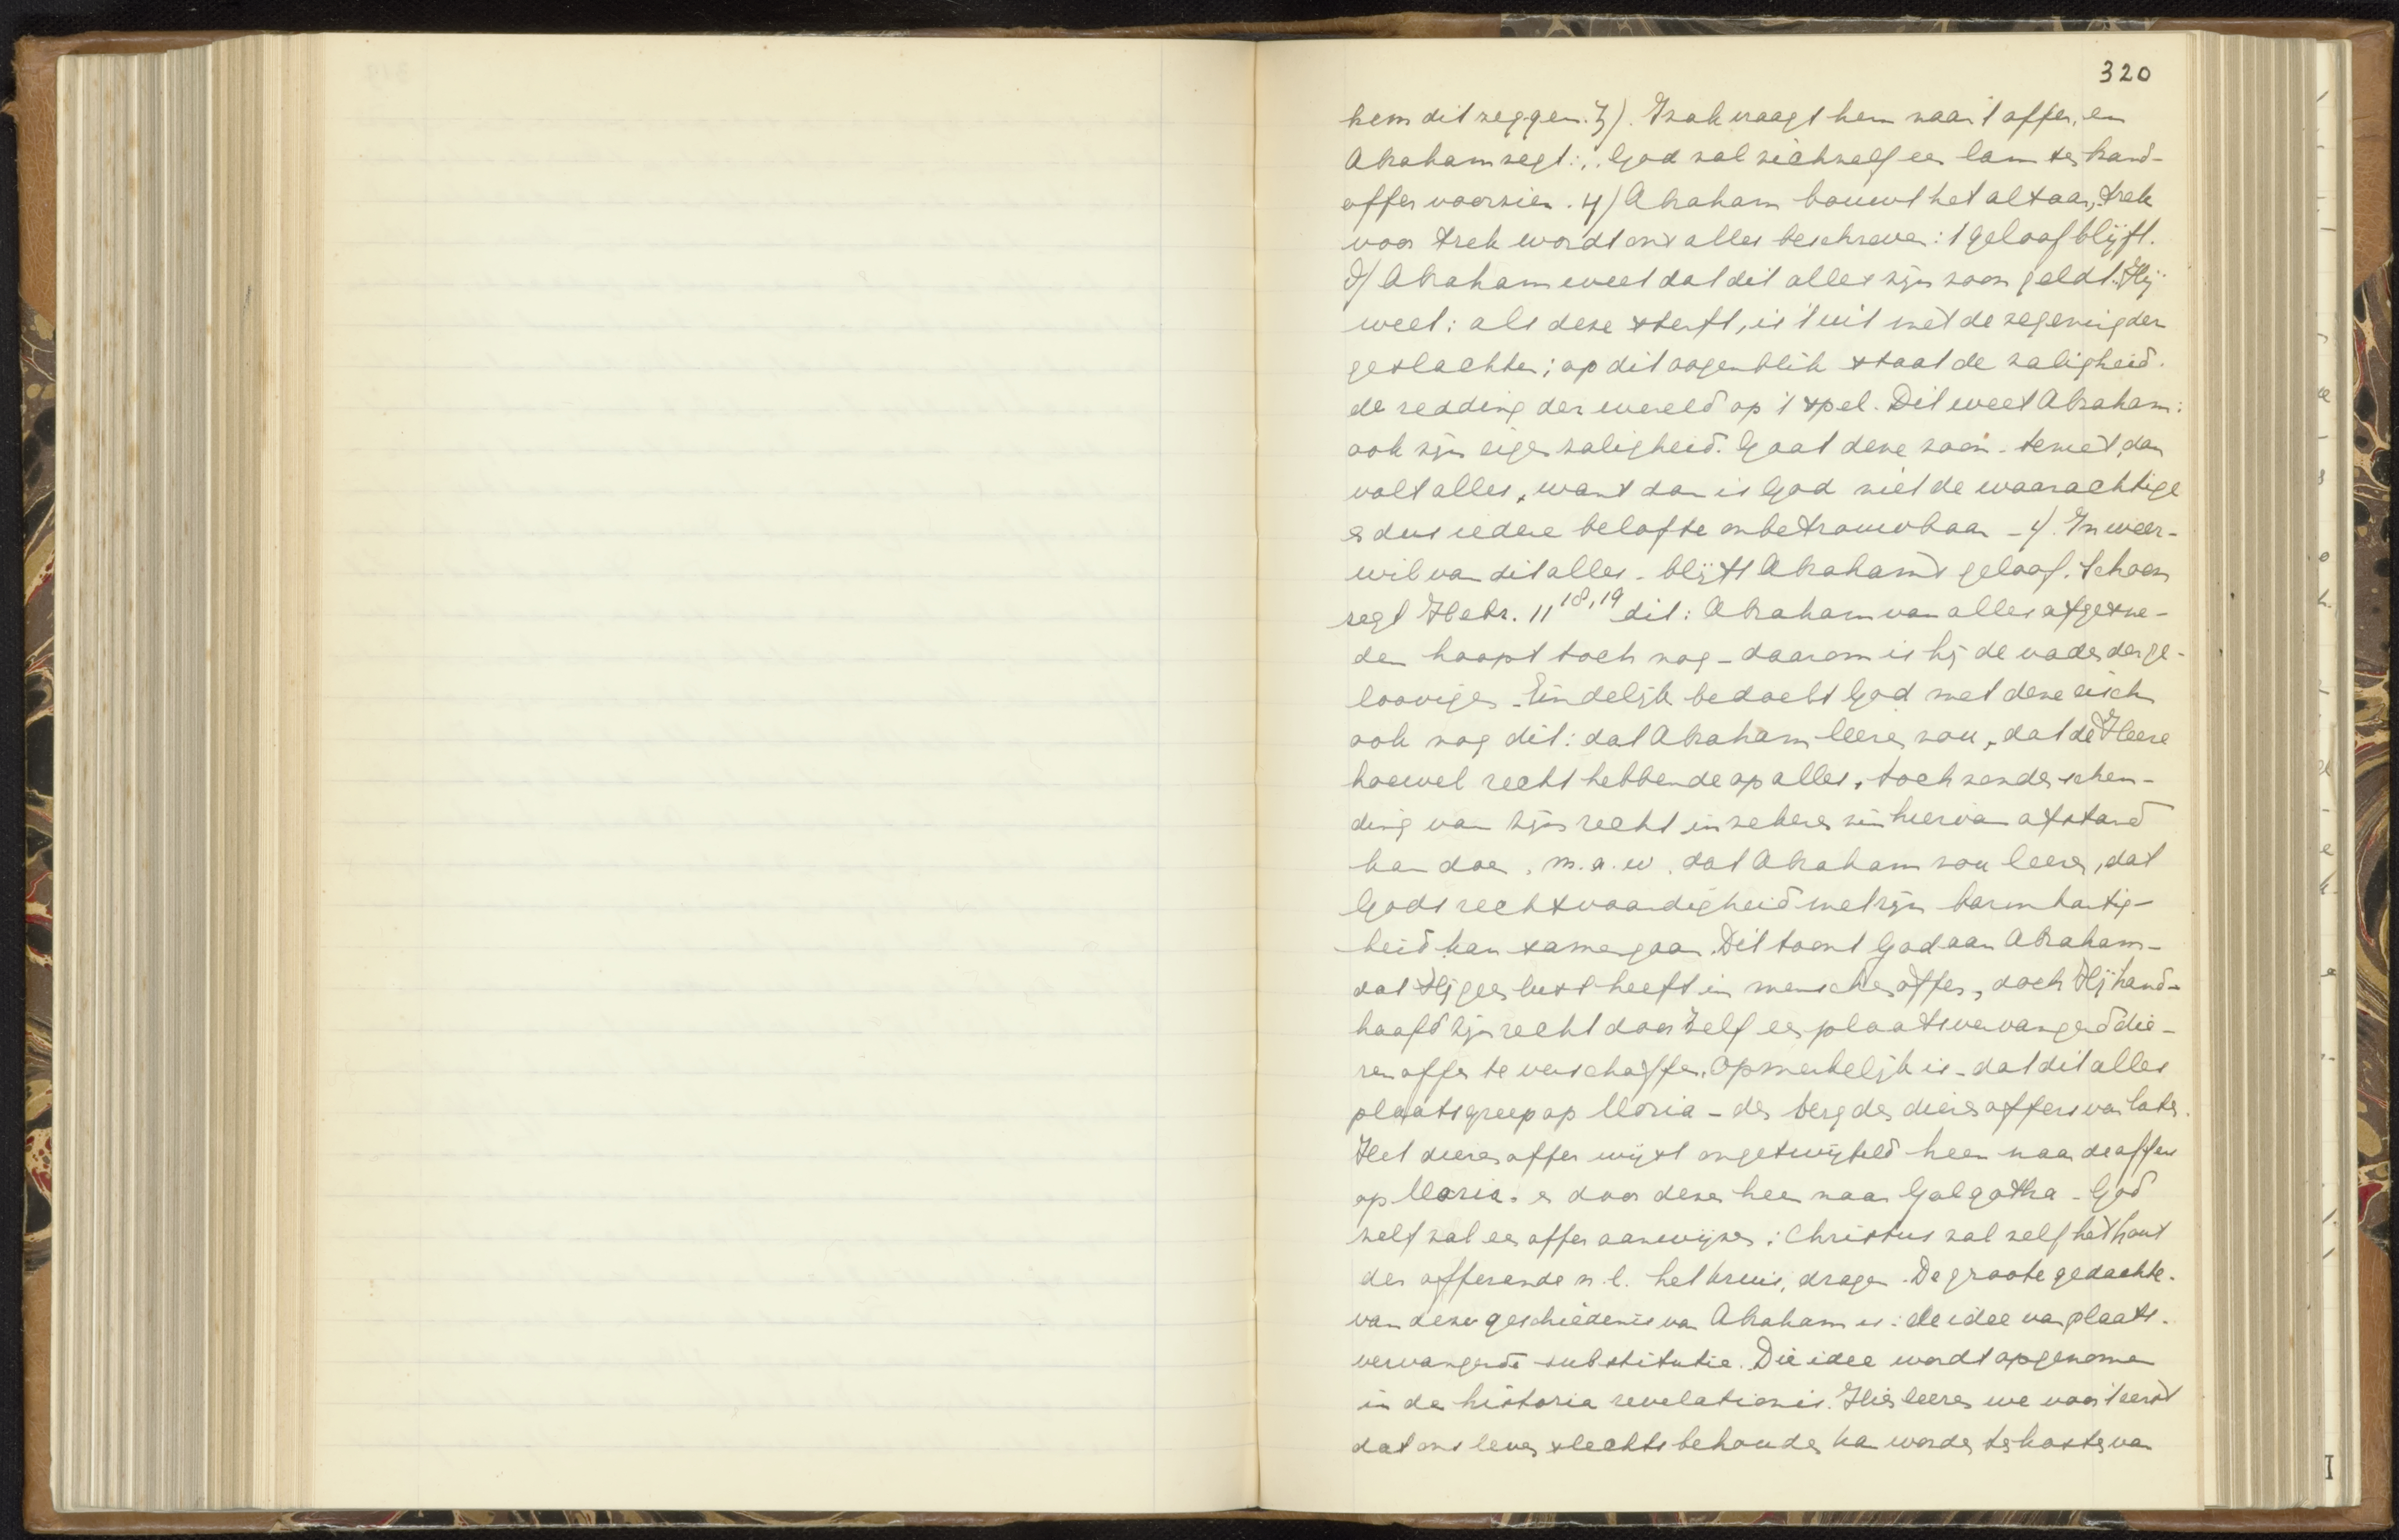 320
hem dit zeggen. 3). Izak vraagt hem naar 't offer, en
Abraham zegt: „God zal zichzelf een lam ten brand-
offer voorzien. 4) Abraham bouwt het altaar, trek
voor trek wordt ons alles beschreven: 't geloof blijft.
d) Abraham weet dat dit alles zijn zoon geldt. Hij
weet: als deze sterft, is 't uit met de zegening der
geslachten; op dit oogenblik staat de zaligheid.
de redding der wereld op 't spel. Dit weet Abraham:
ook zijn eigen zaligheid. Gaat deze zoon te niet, dan
valt alles, want dan is God niet de waarachtige
en dus iedere belofte onbetrouwbaar - 4). In weer-
wil van dit alles - blijft Abraham's geloof. Schoon
zegt Hebr. 11 18,19 dit: Abraham van alles afgesne-
den hoopt toch nog - daarom is hij de vader der ge-
loovigen. Eindelijk bedoelt God met deze eisch
ook nog dit: dat Abraham leeren zou, dat de Heere
hoewel recht hebbende op alles, toch zonder schen-
ding van zijn recht in zekeren zin hiervan afstand
kan doen, m.a.w. dat Abraham zou leeren, dat
Gods rechtvaardigheid met zijn barmhartig-
heid kan samengaan. Dit toont God aan Abraham -
dat Hij geen lust heeft in menschenoffers, doch Hij hand-
haafd zijn recht door zelf een plaatsvervangend die-
renoffer te verschaffen. Opmerkelijk is - dat dit alles
plaatsgreep op Moria - de berg der dierenoffers van later.
Het dierenoffer wijst ongetwijfeld heen naar de offers
op Moria. en door deze heen naar Golgotha - God
zelf zal een offer aanwijzen: Christus zal zelf het hout
der offerande n.l. het kruis, dragen. De groote gedachte.
van deze geschiedenis van Abraham is: de idee van plaats.
vervangende substitutie. Die idee wordt opgenomen
in de historia revelationis. Hier leeren we voor 't eerst
dat ons leven slechts behouden kan worden ten koste van